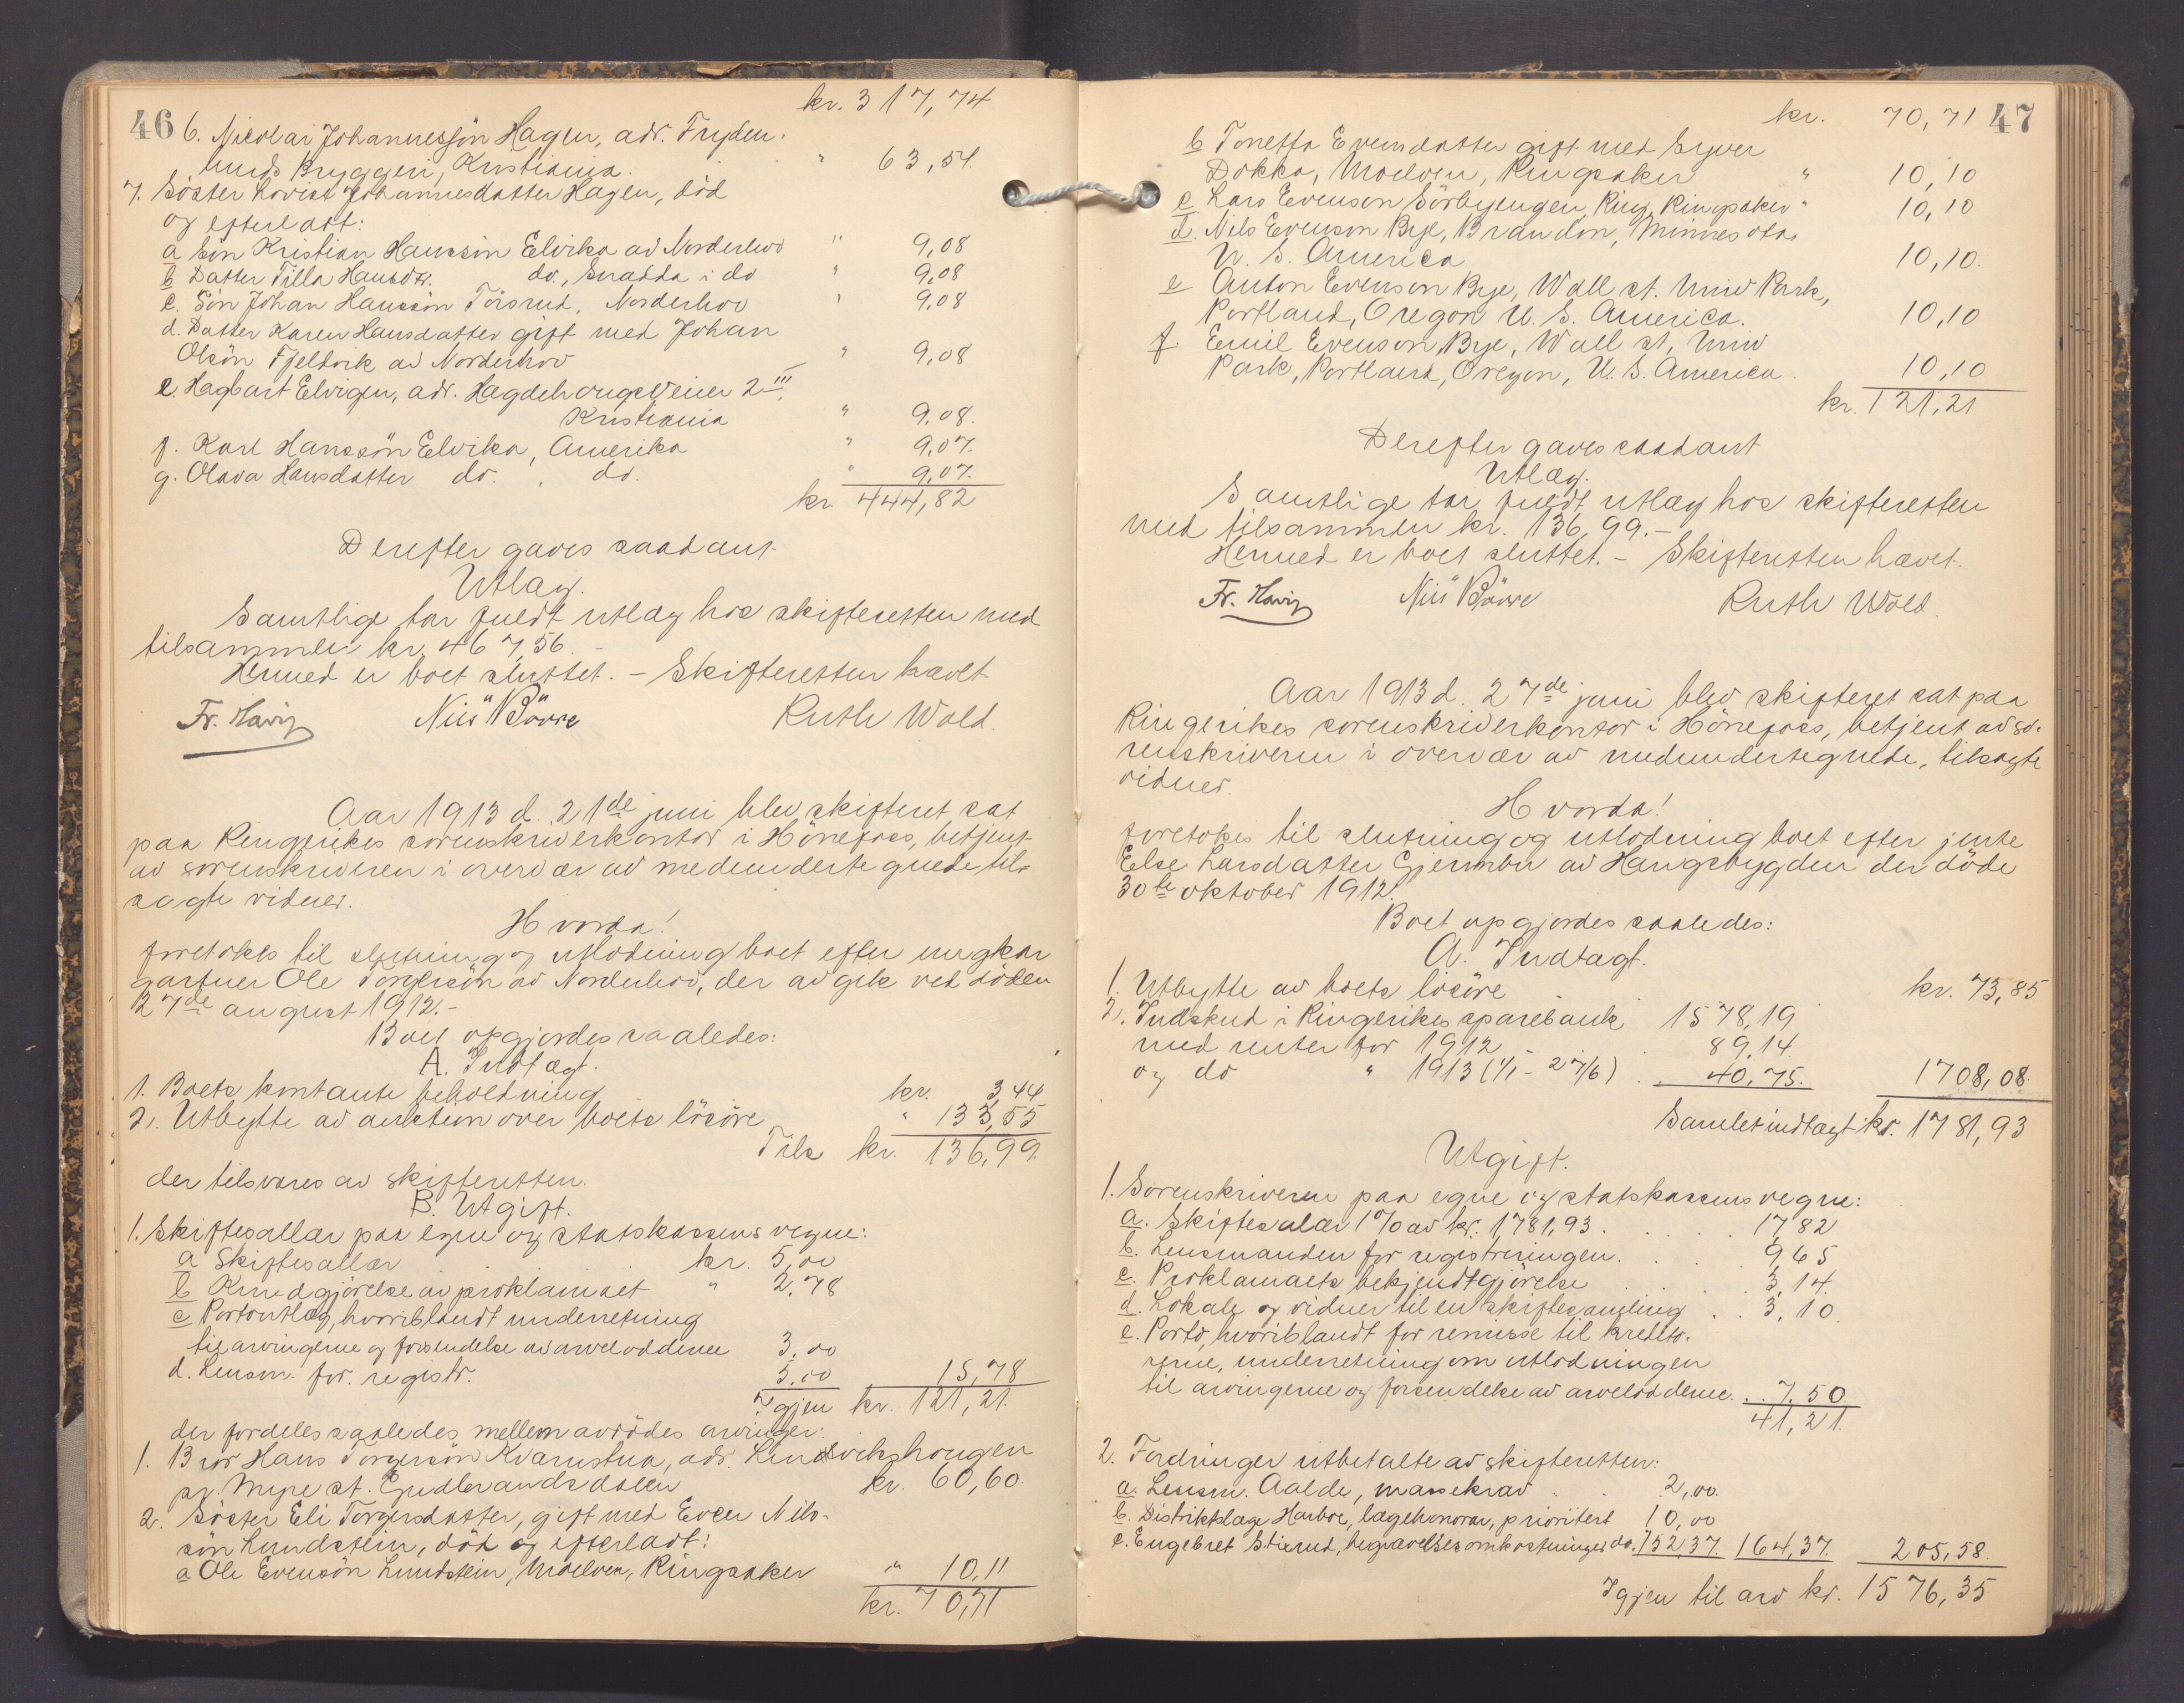 46
kr. 317,74
6. Nicolai Johannessön Hagen, adr. Fryden-
lunds Bryggeri, Kristiania. " 63,54
7. Söster Lovise Johannesdatter Hagen, död
og efterladt:
a Sön Kristian Hanssön Elvika av Norderhov " 9,08
b Datter Tilla Hansdtr. do., Snadda i do " 9,08
c. Sön Johan Hanssön Törsrud, Norderhov " 9,08
d. Datter Karen Hansdatter gift med Johan
Olsön Fjeldvik av Norderhov " 9,08
e. Hagbart Elvigen, adr. Hegdehaugsveien 2 III,
Kristiania " 9,08.
f. Karl Hanssön Elvika, Amerika " 9,07.
g. Olava Hansdatter do., do. " 9,07.
kr. 444,82
Derefter gaves saadant
Utlæg.
Samtlige tar fuldt utlæg hos skifteretten med
tilsammen kr. 467,56. -
Hermed er boet sluttet. - Skifteretten hævet
Fr. Mavig Nils Bövre Ruth Wold.
Aar 1913 d. 21de juni blev skifteret sat
paa Ringerikes sorenskriverkontor i Hönefoss, betjent
av sorenskriveren i overvær av medundertegnede til-
sagte vidner.
Hvorda!
foretokes til slutning og utlodning boet efter ungkar
gartner Ole Torgersön av Norderhov, der avgik ved döden
27de august 1912. -
Boet opgjordes saaledes:
A. Indtægt.
1. Boets kontante beholdning kr. 3,44
2. Utbytte av auktion over boets lösöre " 133,55
Tils kr. 136,99.
der tilsvares av skifteretten.
B. Utgift.
1. Skiftesallær paa egne og statskassens vegne:
a Skiftesallær kr. 5,00
b Kundgjörelse av proklamaet " 2,78
c Portoutlæg, hvoriblandt underretning
til arvingerne og forsendelse av arveloddene 3,00
d. Lensm. for registr. 5,00 15,78
Igjen kr. 121,21.
der fordeles saaledes mellem avdödes arvinger:
1. Bror Hans Torgersön Kvarnstua, adr. Lindvikshougen
pr. Mype st. Gudbrandsdalen kr. 60,60
2. Söster Eli Torgersdatter, gift med Even Nils-
sön Lundstein, död og efterladt:
a Ole Evensön Lundstein, Moelven, Ringsaker " 10,11
kr. 70,71
47
kr. 70,71
b Toneffa Evensdatter gift med Syver
Dokka, Moelven, Ringsaker " 10,10
c. Lars Evenson Sörbyengen, Ring, Ringsaker " 10,10
d. Nils Evenson Bye, Brandon, Minnesota,
U. S. America 10,10.
e Anton Evenson Bye, Wall st. Univ Park,
Portland, Oregon U. S. America. 10,10
f. Emil Evenson Bye, Wall st, Univ
Park, Portland, Oregon, U. S. America. 10,10
kr. 121,21
Derefter gaves saadant
Utlæg.
Samtlige tar fuldt utlæg hos skifteretten
med tilsammen kr. 136,99. -
Hermed er boet sluttet. - Skifteretten hævet.
Fr. Mavig Nils Bövre Ruth Wold.
Aar 1913 d. 27de juni blev skifteret sat paa
Ringerikes sorenskriverkontor i Hönefoss, betjent av so-
renskriveren i overvær av medundertegnede, tilsagte
vidner.
Hvorda!
foretokes til slutning og utlodning boet efter jente
Else Larsdatter Gjermbu av Haugsbygden der döde
30te oktober 1912.
Boet opgjordes saaledes:
A. Indtægt.
1. Utbytte av boets lösöre kr. 73,85
2. Indskud i Ringerikes sparebank 1578,19
med renter for 1912 89,14
og do " 1913 (1/1 - 27/6) . . 40,75. 1708,08
Samlet indtægt kr. 1781,93
Utgift.
1. Sorenskriveren paa egne og statskassens vegne:
a. Skiftesalær 1% av kr. 1781,93 . . . . 17,82
b. Lensmanden for registreringen. . . . 9,65
c. Proklamaets bekjendtgjörelse . . . 3,14.
d. Lokale og vidner til en skiftesamling . . 3,10.
e. Porto, hvoriblandt for remisse til kredito-
rerne, underretning om utlodningen
til arvingerne og forsendelse av arveloddene. . . 7,50
41,21.
2. Fordringer utbetalte av skifteretten:
a. Lensm. Aalde, massekrav . . 2,00.
b. Distriktslæge Harboe, lægehonorar, prioritert 10,00
c. Engebret Stixrud, begravelsesomkostninger do. 152,37. 164,37. 205,58.
Igjen til arv kr. 1576,35